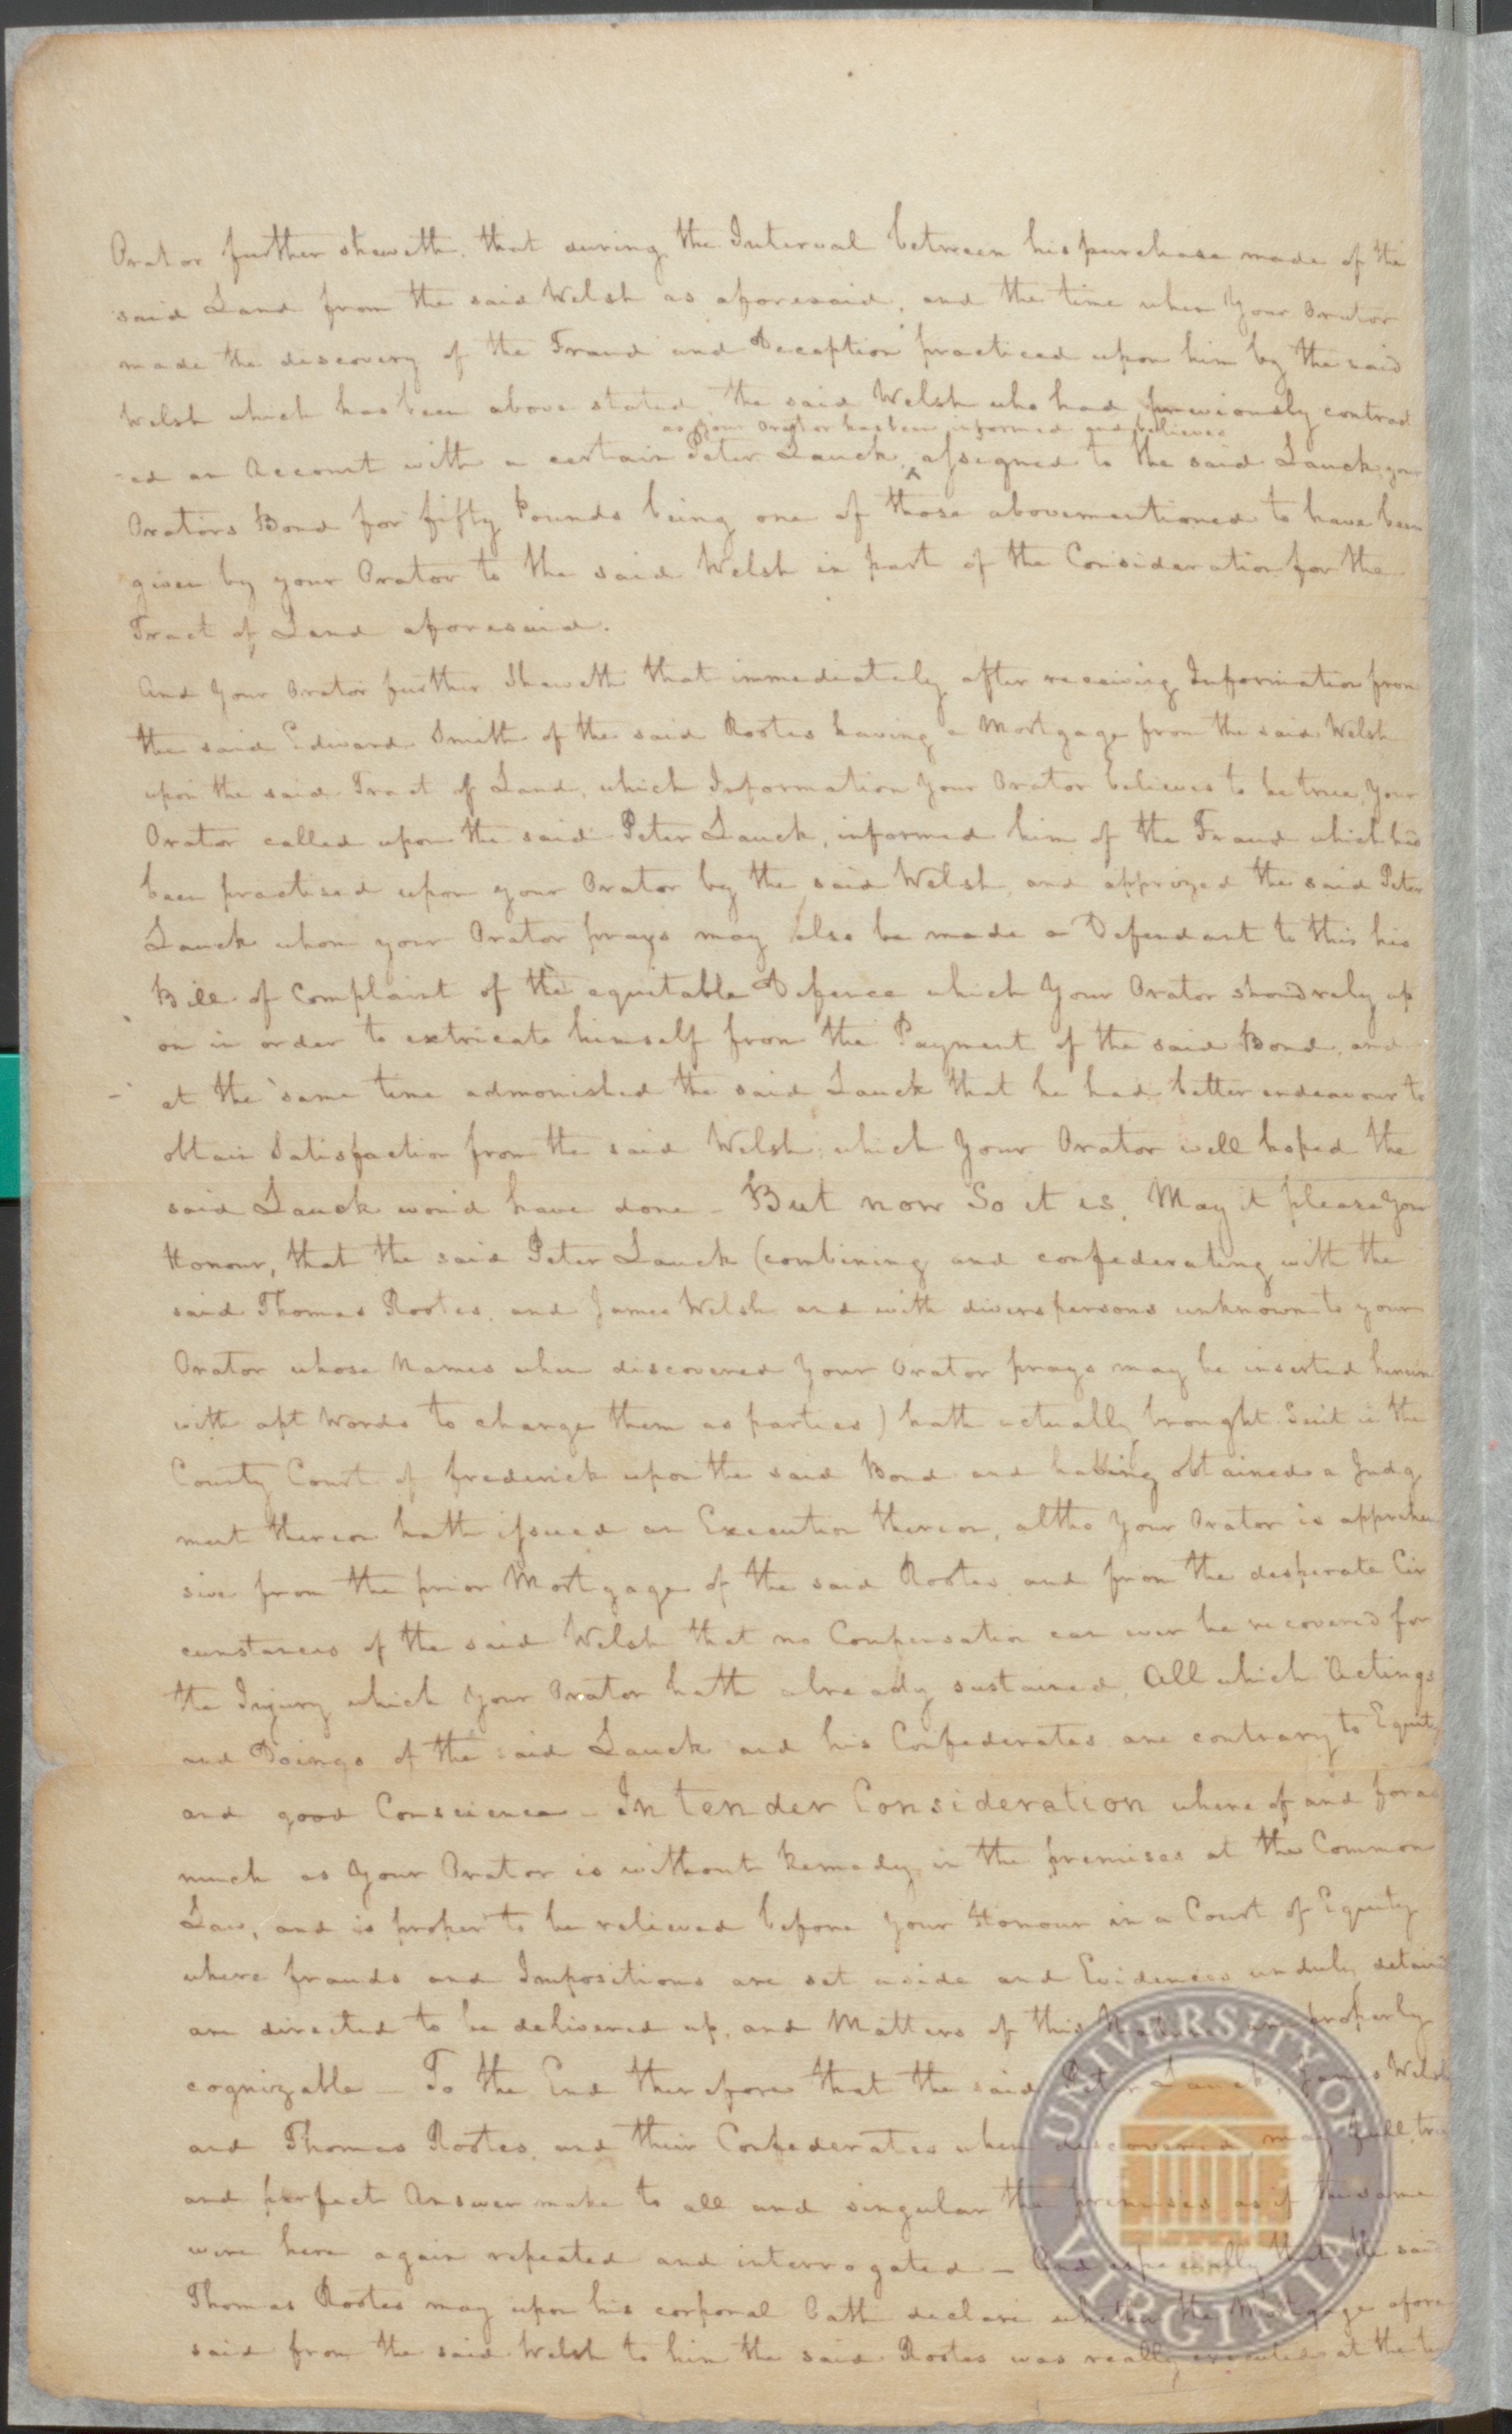 Orator further sheweth, that during the Interval between his purchase made of the
said Land from the said Welsh as aforesaid, and the time when Your Orator
made the discovery of the Fraud and Deception practiced upon him by the said
Welsh which has been above stated, the said Welsh who had previously contract
as your Orator has been informed and believes
-ed an Account with a certain Peter Lauck, ^ assigned to the said Lauck your
Orators Bond for fifty Pounds being one of those abovementioned to have been
given by your Orator to the said Welsh in part of the Consideration for the
Tract of Land aforesaid.
And Your Orator further Sheweth that immediately after receiving Information from
the said Edward Smith of the said Rootes having a Mortgage from the said Welsh
upon the said Tract of Land, which Information Your Orator believes to be true, Your
Orator called upon the said Peter Lauck, informed him of the Fraud which had
been practised upon your Orator by the said Welsh, and apprized the said Peter
Lauck whom your Orator prays may also be made a Defendant to this his
Bill of Complaint of the equitable Defence which Your Orator shou'd rely up
on in order to extricate himself from the Payment of the said Bond, and
at the same time admonished the said Lauck that he had better endeavour to
obtain Satisfaction from the said Welsh, which Your Orator well hoped the
said Lauck wou'd have done - But now So it is, May it please Your
Honour, that the said Peter Lauck (combining and confederating with the
said Thomas Rootes, and James Welsh and with divers persons unknown to your
Orator whose Names when discovered Your Orator prays may be inserted herein
with apt Words to charge them as parties) hath actually brought Suit in the
County Court of frederick upon the said Bond and having obtained a Judg
ment thereon hath issued an Execution thereon, altho Your Orator is apprehen
sive from the prior Mortgage of the said Rootes, and from the desperate Cir
cumstances of the said Welsh that no Compensation can ever be recovered for
the Injury which Your Orator hath already sustained, All which Actings
and Doings of the said Lauck and his Confederates are contrary to Equity
and good Conscience - In tender Consideration where of and foras
much as Your Orator is without Remedy in the premises at the Common
Law, and is proper to be relieved before Your Honour in a Court of Equity
where frauds and Impositions are set aside and Evidences unduly detain'd
are directed to be delivered up, and Matters of this Nature are properly
cognizable - To the End therefore that the said Peter Lauck, James Welsh
and Thomas Rootes, and their Confederates when discovered, may full, true
and perfect Answer make to all and singular the premises as if the same
were here again repeated and interrogated - And especially that the said
Thomas Rootes may upon his corporal Oath declare whether the Mortgage afore
said from the said Welsh to him the said Rootes was really executed at the
UNIVERSITY OF
VIRGINIA